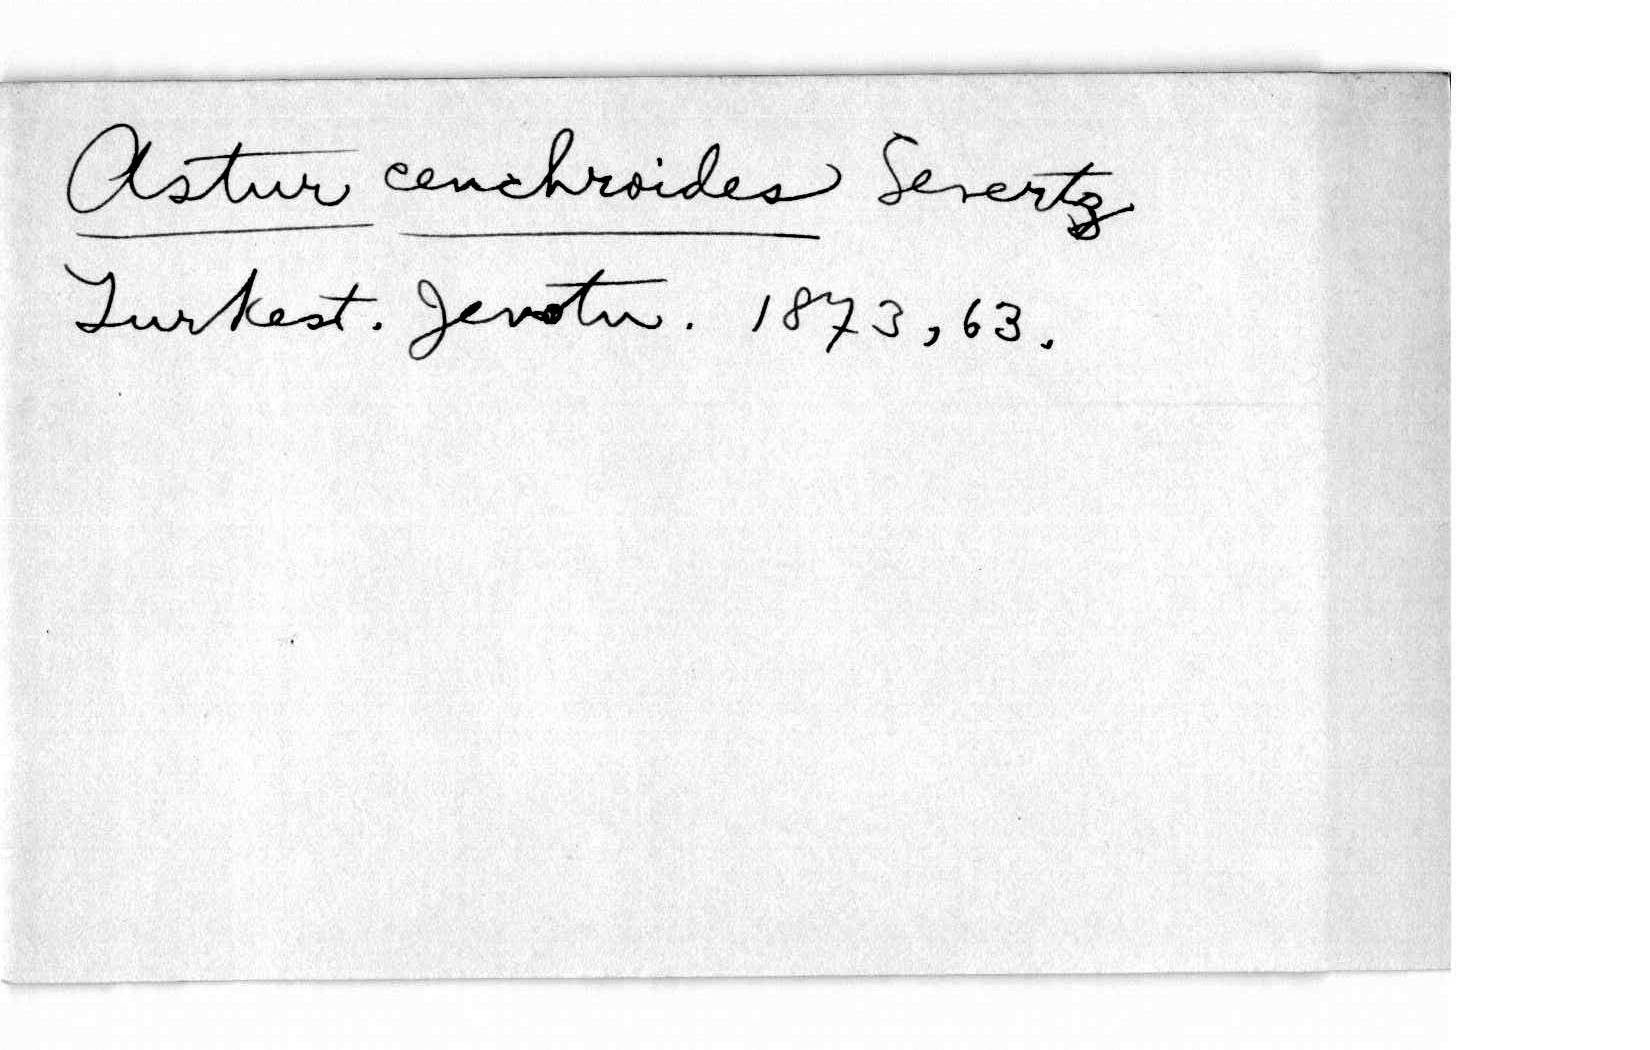 Astur cenchroides Severtz
Turkest. Jevotn. 1873, 63.